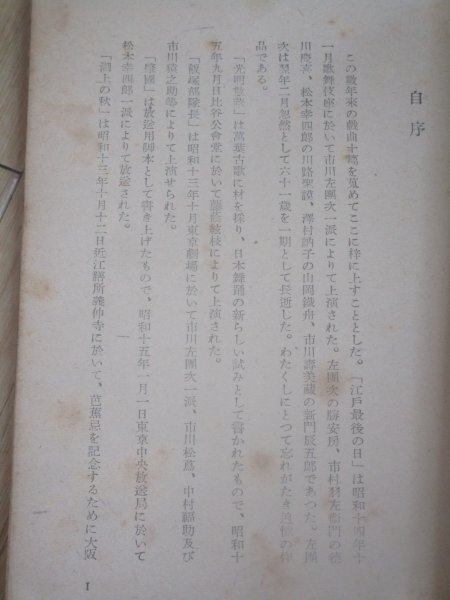 自序
この數年來の戯曲十篇を蒐めてここに梓に上すこととした。「江戸最後の日」は昭和十四年十
一月歌舞伎座に於いて市川左團次一派によりて上演された。左團次の勝安房、市村羽左衛門の德
川慶喜、松本幸四郎の川路聖謨、澤村訥子の山岡鐵舟、市川壽美藏の新門辰五郎であつた。左團
次は翌年二月忽然として六十一歳を一期として長逝した。わたくしにとつて忘れがたき追憶の作
品である。
「光明散華」は萬葉古歌に材を採り、日本舞踊の新らしい試みとして書かれたもので、昭和十
五年九月日比谷公會堂に於いて藤蔭靜枝によりて上演された。
「飯塚部隊長」は昭和十三年十月東京劇場に於いて市川左團次一派、市川松蔦、中村福助及び
市川猿之助等によりて上演せられた。
「肇國」は放送用脚本として書き上げたもので、昭和十五年一月一日東京中央放送局に於いて
松本幸四郎一派によりて放送された。
「湖上の秋」は昭和十三年十月十二日近江膳所義仲寺に於いて、芭蕉忌を記念するために大阪
1